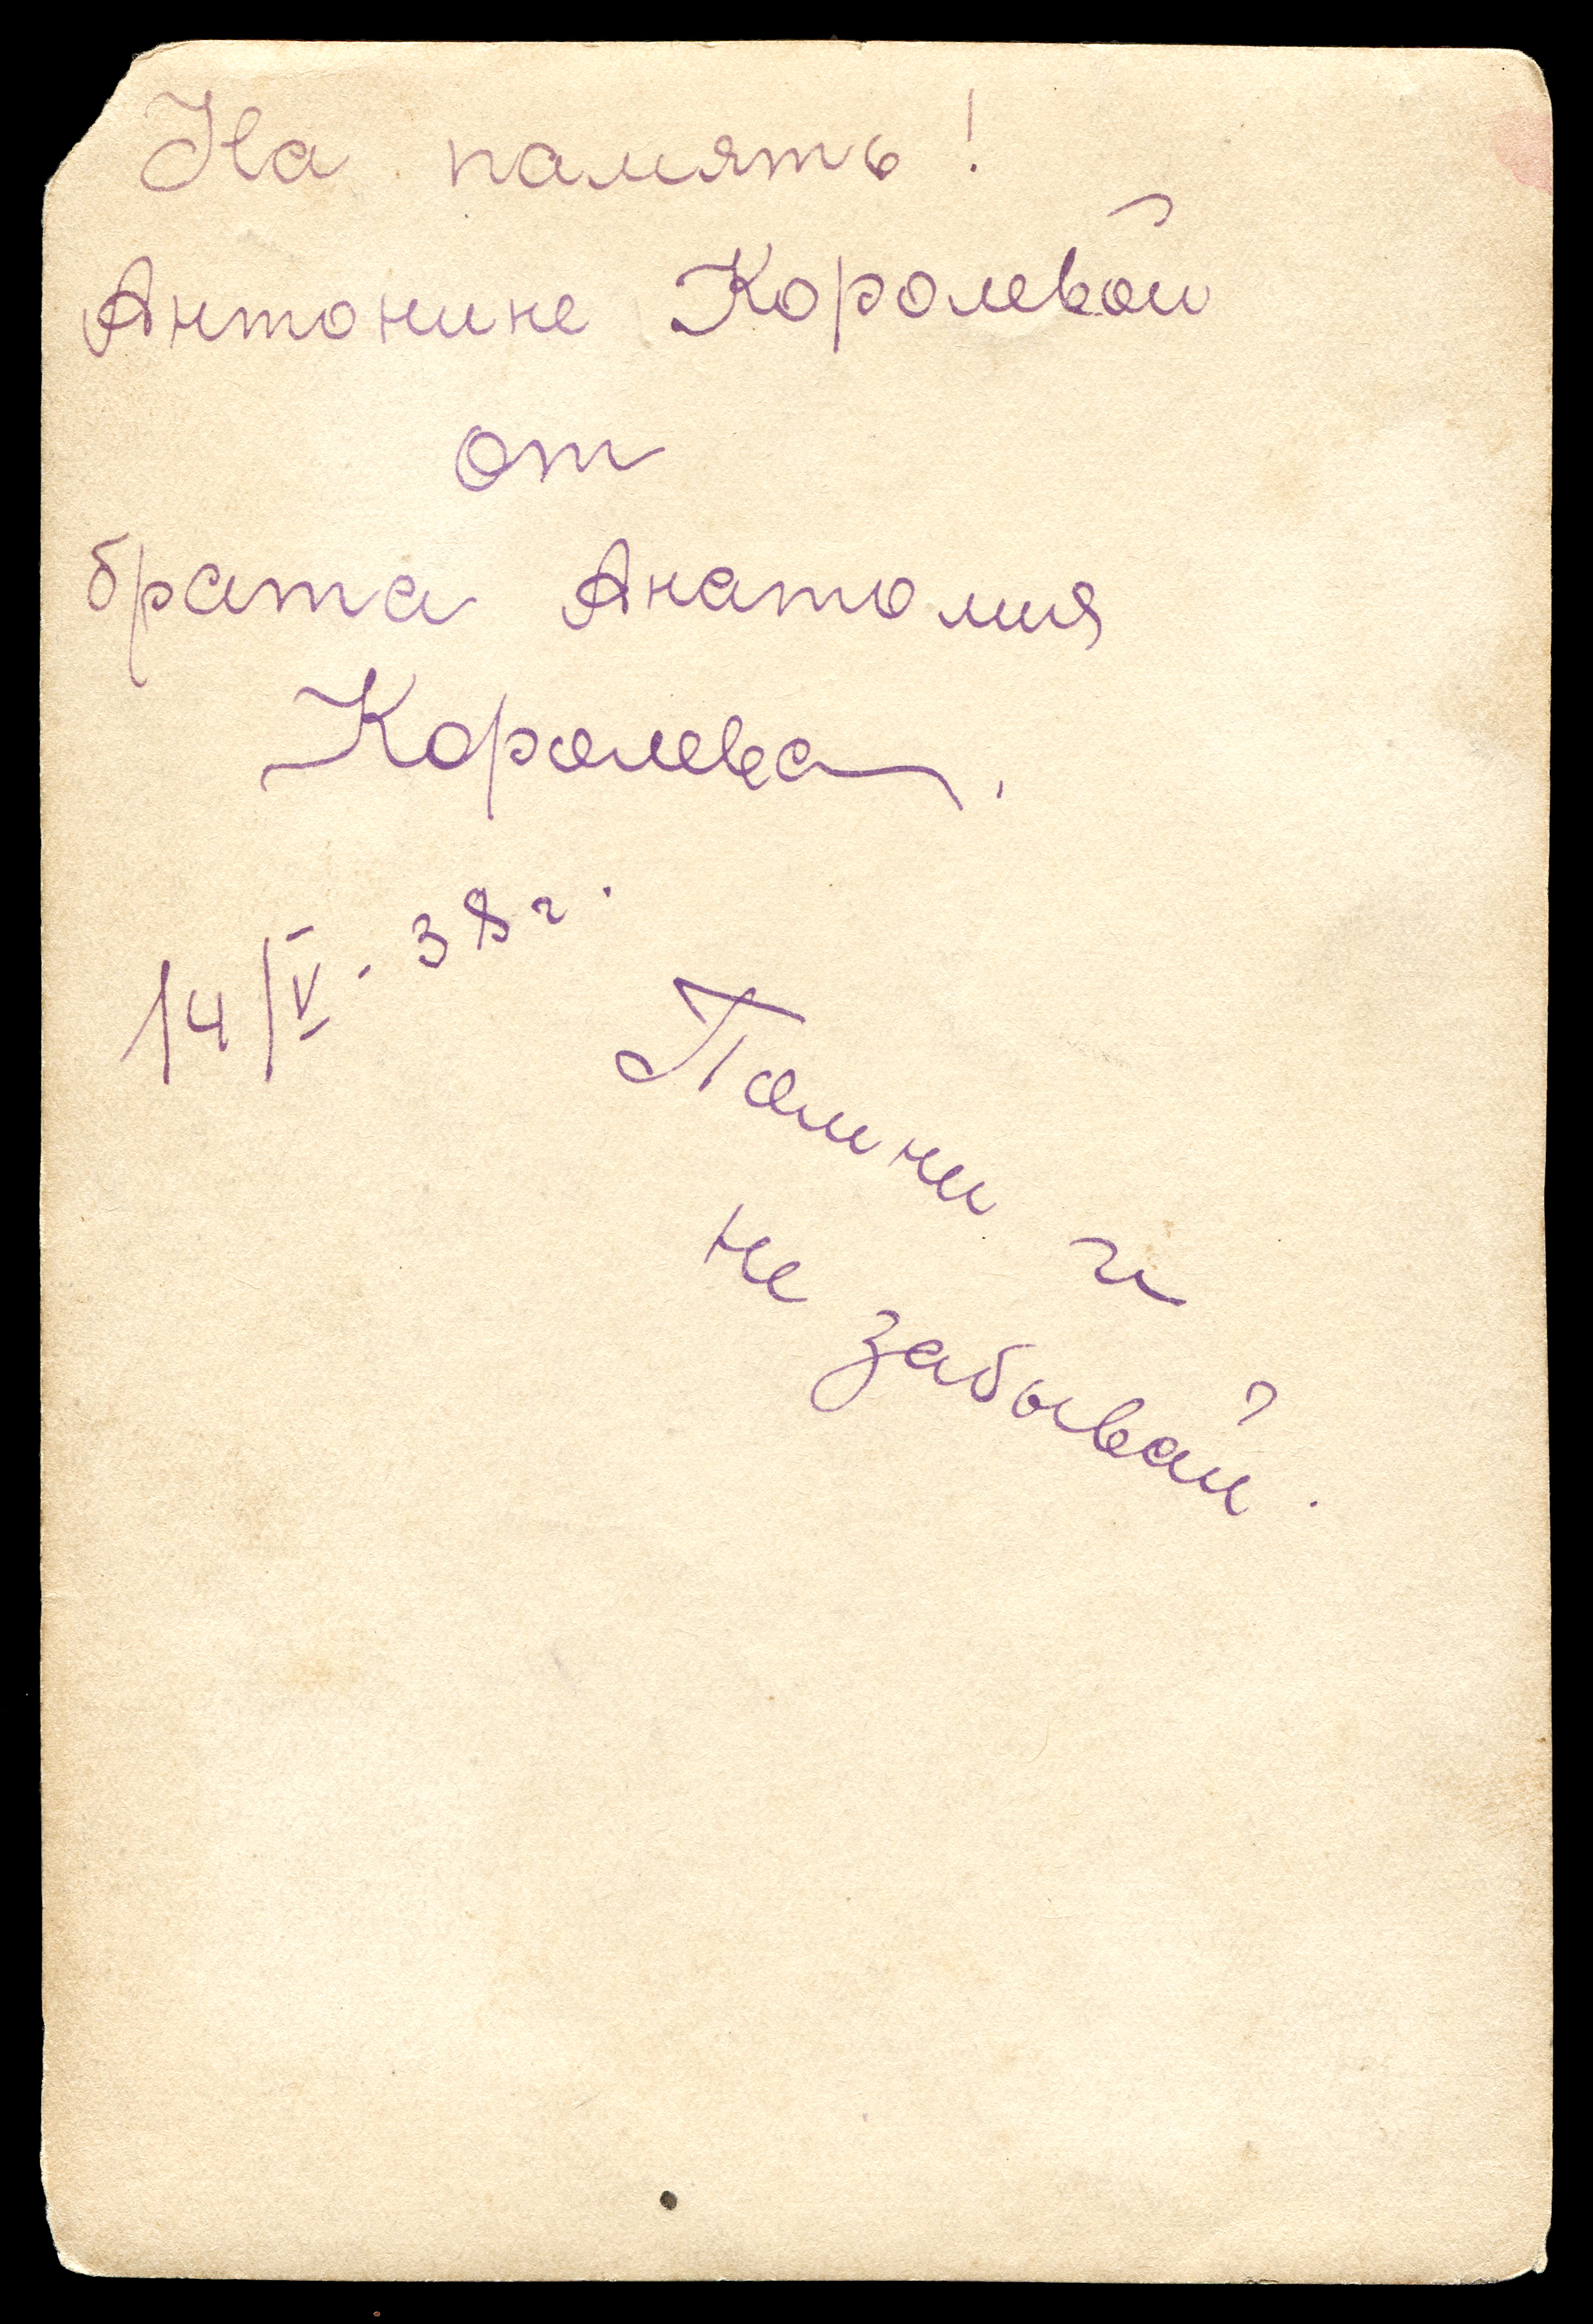 На память!
Антонине Королевой
от
брата Анатолия
Королева.
14/V - 38 г.
Помни и
не забывай.